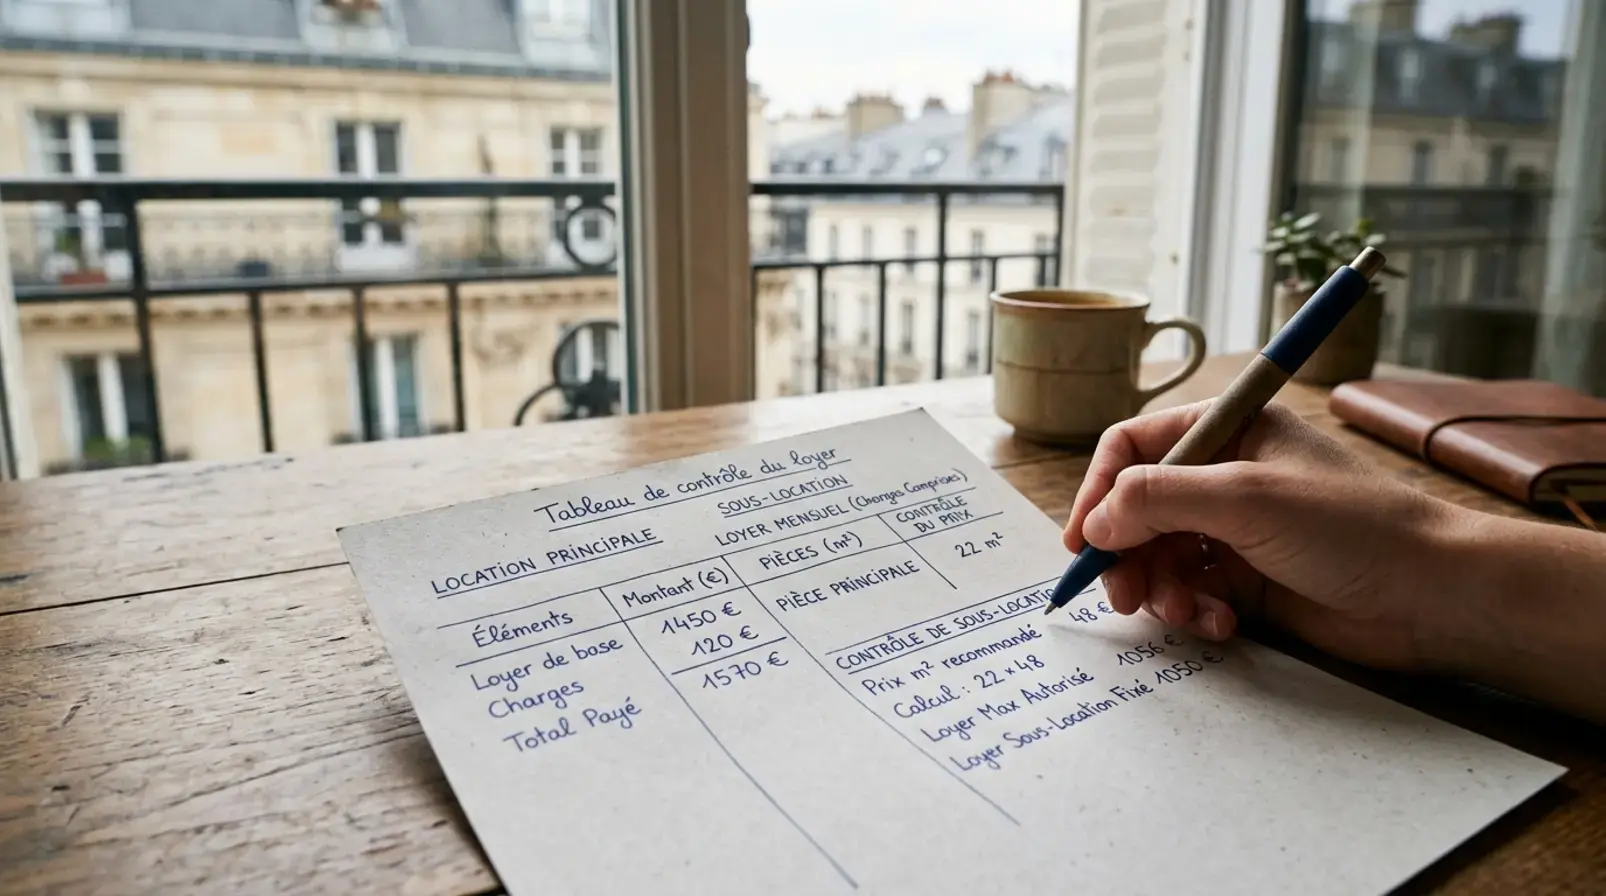 Tableau de contrôle du loyer
LOCATION PRINCIPALE
Éléments Montant (€)
Loyer de base 1450 €
Charges 120 €
Total Payé 1570 €
SOUS-LOCATION
LOYER MENSUEL (Charges Comprises)
PIÈCES (m²) CONTRÔLE DU PRIX
PIÈCE PRINCIPALE 22 m²
CONTRÔLE DE SOUS-LOCATIO
Prix m² recommandé 48 €
Calcul : 22 × 48
Loyer Max Autorisé 1056 €
Loyer Sous-Location Fixé 1050 €